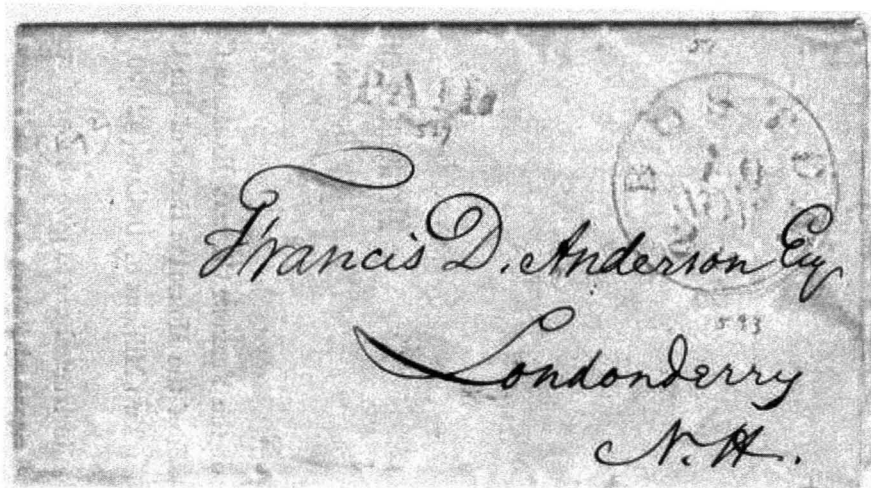 PAID
519
BOSTON
10
Francis D. Anderson Esq
593
Londonderry
N.H.